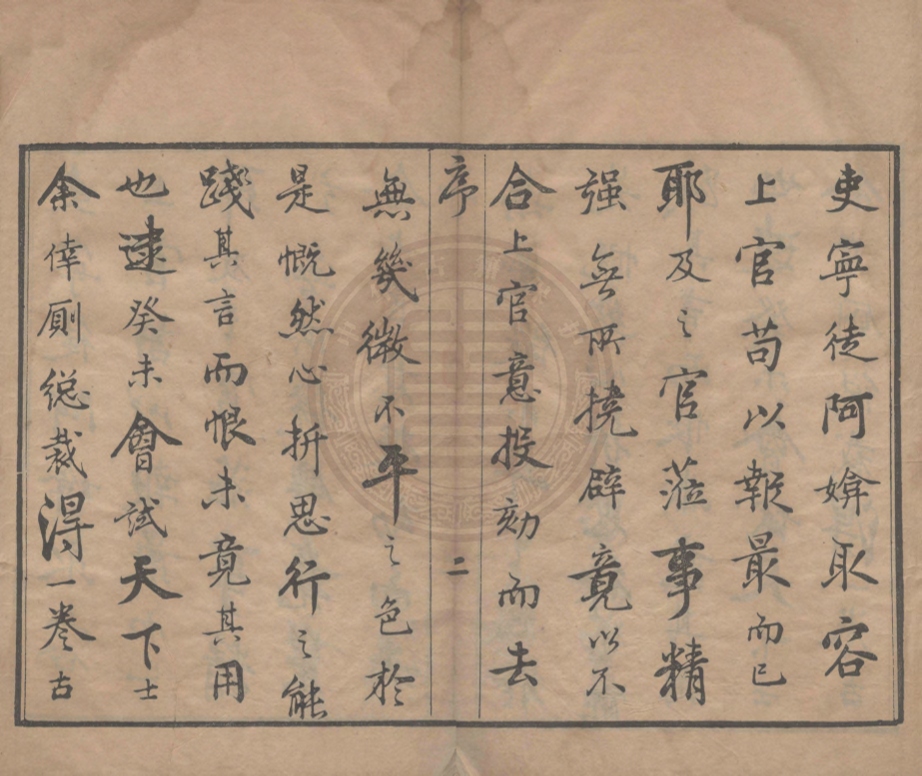 吏寧徒阿媕取容
上官苟以報最而已
耶及之官蒞事精
强無所撓辟竟以不
合上官意投劾而去
序 二
無幾微不平之色於
是慨然心折思行之能
踐其言而恨未竟其用
也逮癸未會試天下士
余倖厠総裁得一卷古